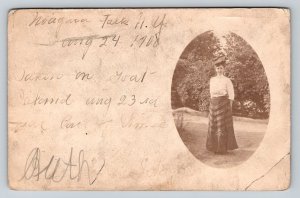 Niagara Falls N.Y
Aug 24 1908
Taken on Goat
Island aug 23rd
Ruth